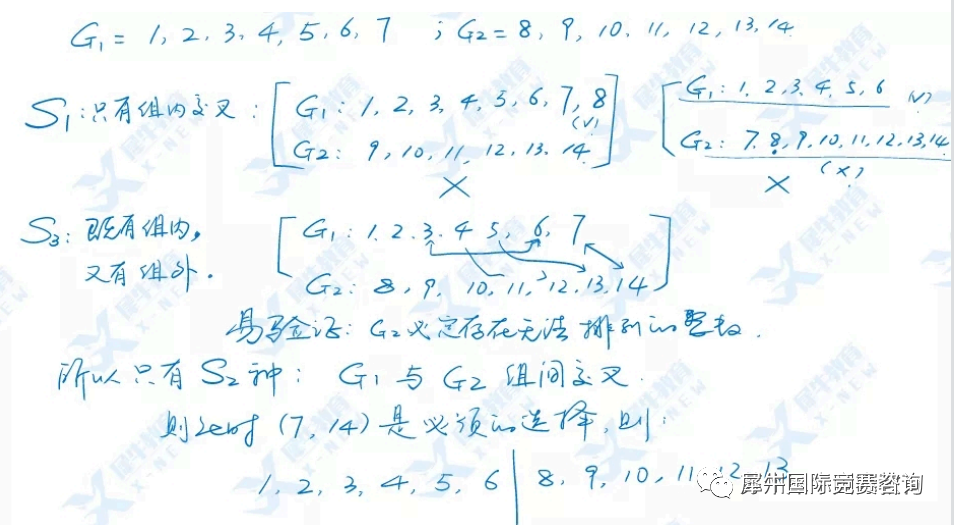 G₁ = 1, 2, 3, 4, 5, 6, 7 ; G₂ = 8, 9, 10, 11, 12, 13, 14
S₁: 只有组内交叉: [ G₁: 1, 2, 3, 4, 5, 6, 7, 8 (√) ] [ G₁: 1, 2, 3, 4, 5, 6 (√)
G₂: 9, 10, 11, 12, 13, 14 G₂: 7, 8, 9, 10, 11, 12, 13, 14 (×)
× ×
S₃: 既有组内, G₁: 1, 2, 3, 4, 5, 6, 7
又有组外. G₂: 8, 9, 10, 11, 12, 13, 14
易验证: G₂必定存在无法排列的整数.
所以只有S₂种: G₁与G₂组间交叉.
则这时 (7, 14) 是必须的选择, 则:
1, 2, 3, 4, 5, 6 | 8, 9, 10, 11, 12, 13
犀牛国际竞赛咨询
犀牛教育
X-NEW